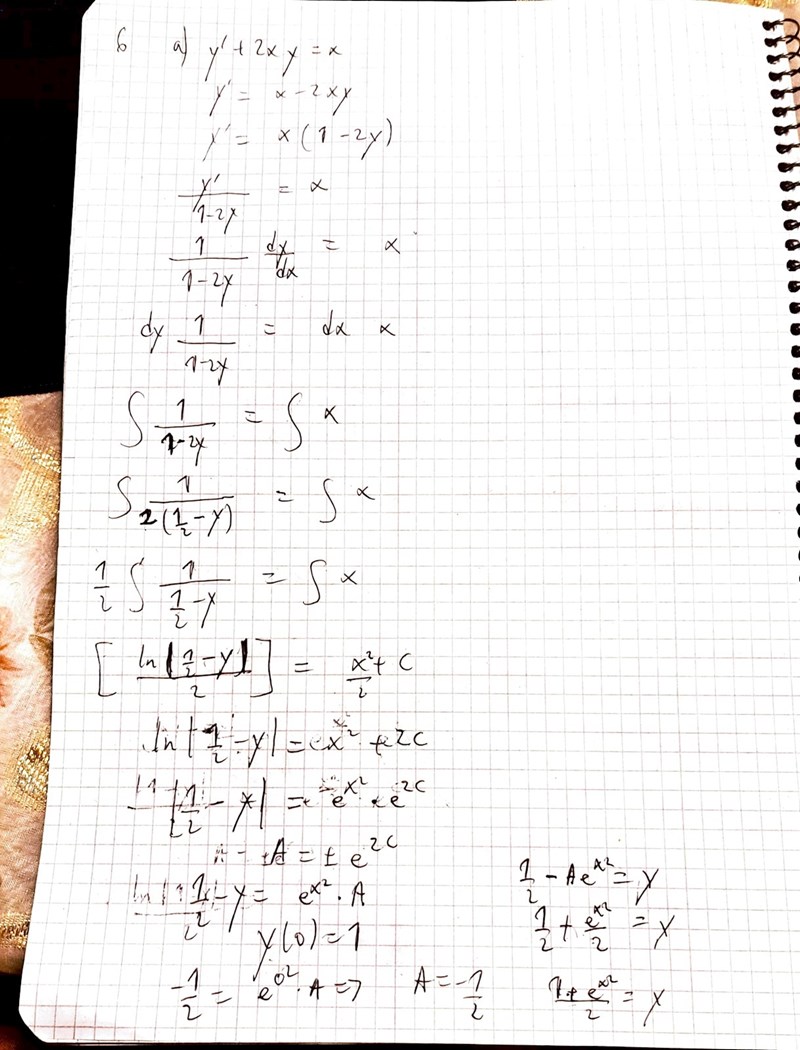 6 a) y' + 2xy = x
y' = x - 2xy
y' = x(1-2y)
y'/(1-2y) = x
1/(1-2y) dy/dx = x
dy 1/(1-2y) = dx x
∫ 1/(1-2y) = ∫ x
∫ 1/(2(1/2-y)) = ∫ x
1/2 ∫ 1/(1/2-y) = ∫ x
[ln|1/2-y|/2] = x²/2 + C
ln|1/2-y| = x² + 2C
|1/2-y| = e^x² · e^2C
±A = ± e^2C
1/2-y = e^x² · A
y(0) = 1
-1/2 = e^0² · A => A = -1/2
1/2 - Ae^x² = y
1/2 + e^x²/2 = y
(1+e^x²)/2 = y